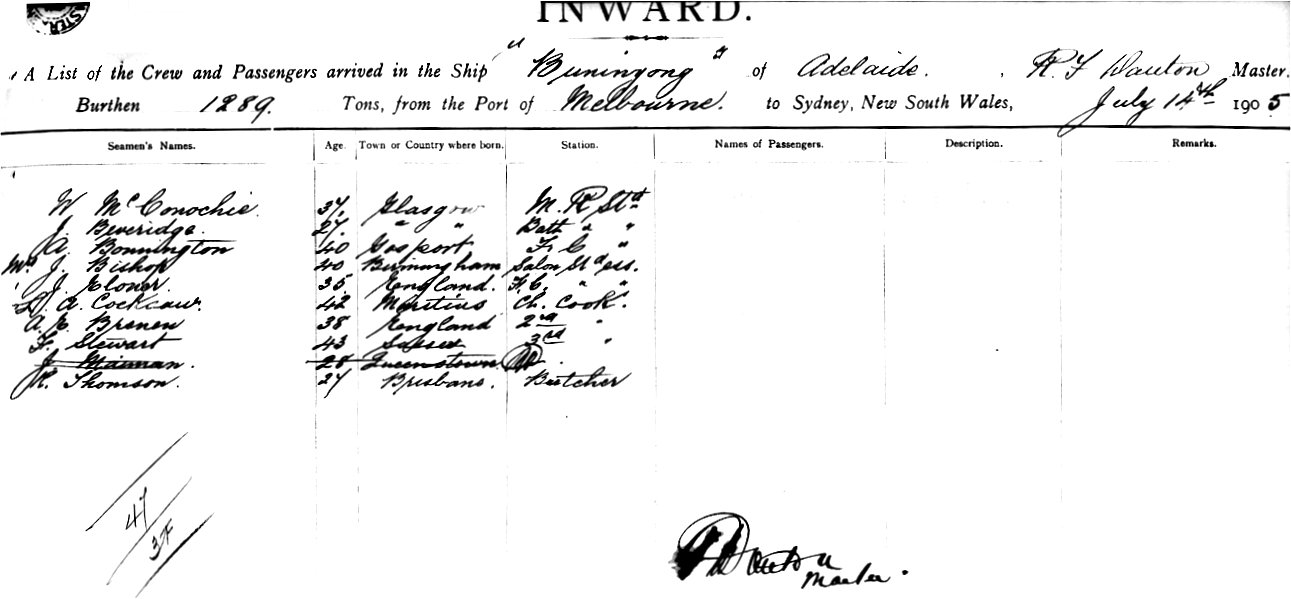 STER
INWARD.
A List of the Crew and Passengers arrived in the Ship "Buninyong" of Adelaide. , R. F. Dawton Master.
Burthen 1289. Tons, from the Port of Melbourne. to Sydney, New South Wales, July 14th 1905
Seamen's Names. Age. Town or Country where born. Station. Names of Passengers. Description. Remarks.
W McConochie. 37. Glasgow M. R. Std
J. Beveridge. 27. " " Bath " "
A. Bonnington 40 Gosport F. C "
Mrs J. Bishop 40 Birmingham Salon Stdess.
J. 35 England. F. C. " "
A. Cockcaw. 42 Mauritius Ch. Cook.
A. E. Brenen 38 England 2nd "
F. Stewart 43 Sussex 3rd "
J. Maiman. 28 Queenstown.
R. Thomson. 27 Brisbane. Butcher
47
37
Dawton
Master.